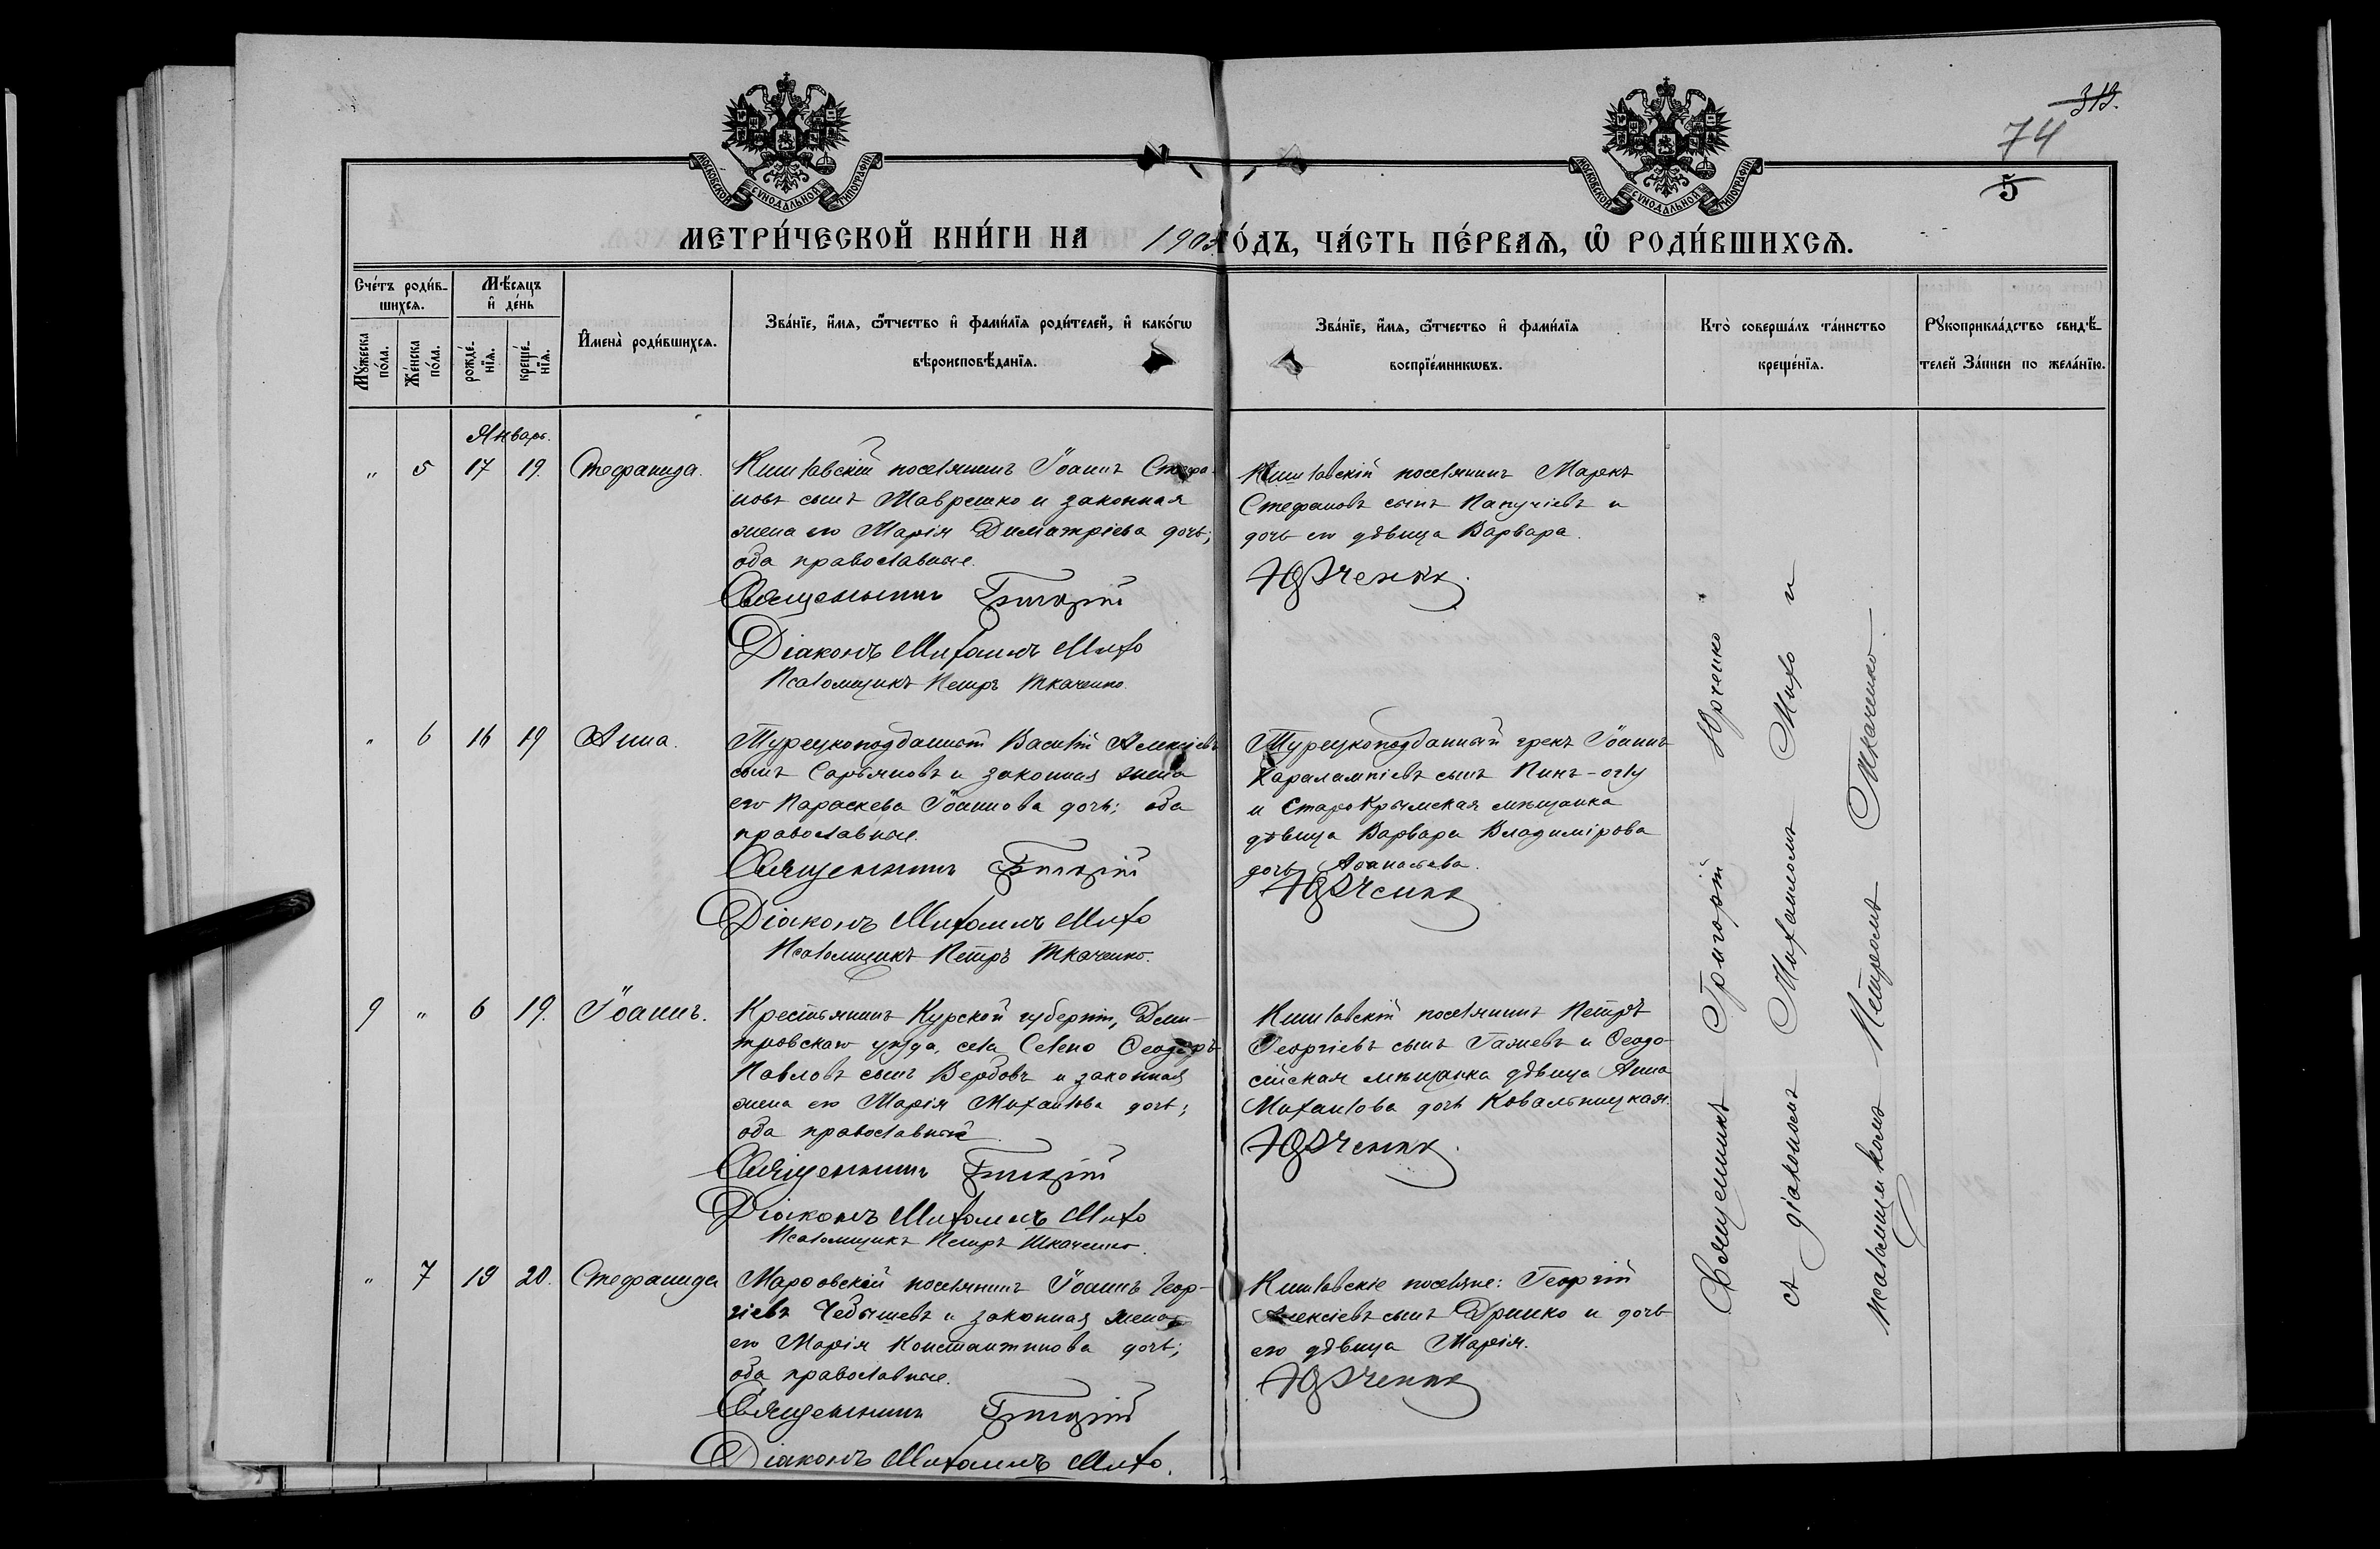 319.
74
5
МОСКОВСКОЙ СУНОДАЛЬНОЙ ТИПОГРАФІИ
МОСКОВСКОЙ СУНОДАЛЬНОЙ ТИПОГРАФІИ
МЕТРИ́ЧЕСКОЙ КНИ́ГИ НА 1903 ГО́ДЪ, ЧА́СТЬ ПЕ́РВАѦ, Ѿ РОДИ́ВШИХСѦ.
Сче́тъ роди́в-
шихсѧ.
Мꙋ́жеска
по́ла.
Же́нска
по́ла.
Мѣ́сѧцъ
и҆ де́нь
рожде́-
нїѧ.
креще́-
нїѧ.
И҆мена̀ роди́вшихсѧ.
Зва́нїе, и҆́мѧ, ѻ҆́тчество и҆ фами́лїѧ роди́телей, и҆ како́гѡ
вѣроисповѣ́данїѧ.
Зва́нїе, и҆́мѧ, ѻ҆́тчество и҆ фами́лїѧ
воспрїе́мникѡвъ.
Кто̀ соверша́лъ та́инство
креще́нїѧ.
Рꙋкоприкла́дство свидѣ́-
телей За́писи по жела́нїю.
Январь.
" 5 17 19. Стефанида.
Кишлавскій поселянинъ Іоаннъ Стефа-
новъ сынъ Маврешко и законная
жена его Марія Димитріева дочь;
оба православные.
Священникъ Григорій
Діаконъ Михаилъ Михо
Псаломщикъ Петръ Ткаченко.
Кишлавскій поселянинъ Маркъ
Стефановъ сынъ Папучіевъ и
дочь его дѣвица Варвара.
Юрченко.
" 6 16 19 Анна.
Турецкоподданный Василій Алексіевъ
сынъ Сарьяновъ и законная жена
его Параскева Іоаннова дочь; оба
православные.
Священникъ Григорій
Діаконъ Михаилъ Михо
Псаломщикъ Петръ Ткаченко.
Турецкоподданный грекъ Іоаннъ
Харалампіевъ сынъ Пинъ-оглу
и Старокрымская мѣщанка
дѣвица Варвара Владимірова
дочь Афанасьева.
Юрченко
9 " 6 19. Іоаннъ.
Крестьянинъ Курской губерніи, Дми-
тровскаго уѣзда, села Селено Ѳеодоръ
Павловъ сынъ Вербовъ и законная
жена его Марія Михаилова дочь;
оба православные.
Священникъ Григорій
Діаконъ Михаилъ Михо
Псаломщикъ Петръ Ткаченко.
Кишлавскій поселянинъ Петръ
Георгіевъ сынъ Гажевъ и Ѳеодо-
сійская мѣщанка дѣвица Анна
Михаилова дочь Ковальницкая.
Юрченко.
" 7 19 20. Стефанида
Марѳовскій поселянинъ Іоаннъ Геор-
гіевъ Чебышевъ и законная жена
его Марія Константинова дочь;
оба православные.
Священникъ Григорій
Діаконъ Михаилъ Михо.
Кишлавскіе поселяне: Георгій
Алексіевъ сынъ Дринко и дочь
его дѣвица Марія.
Юрченко
Священникъ Григорій Юрченко
съ діакономъ Михаиломъ Михо и
псаломщикомъ Петромъ Ткаченко.